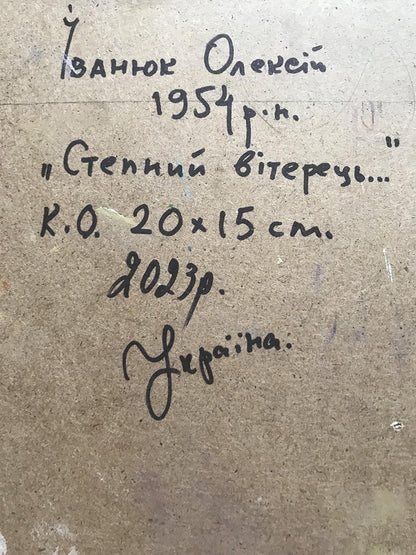 Іванюк Олексій
1954 р.н.
„Степний вітерець..."
К.О. 20х15 cm.
2023р.
Україна.